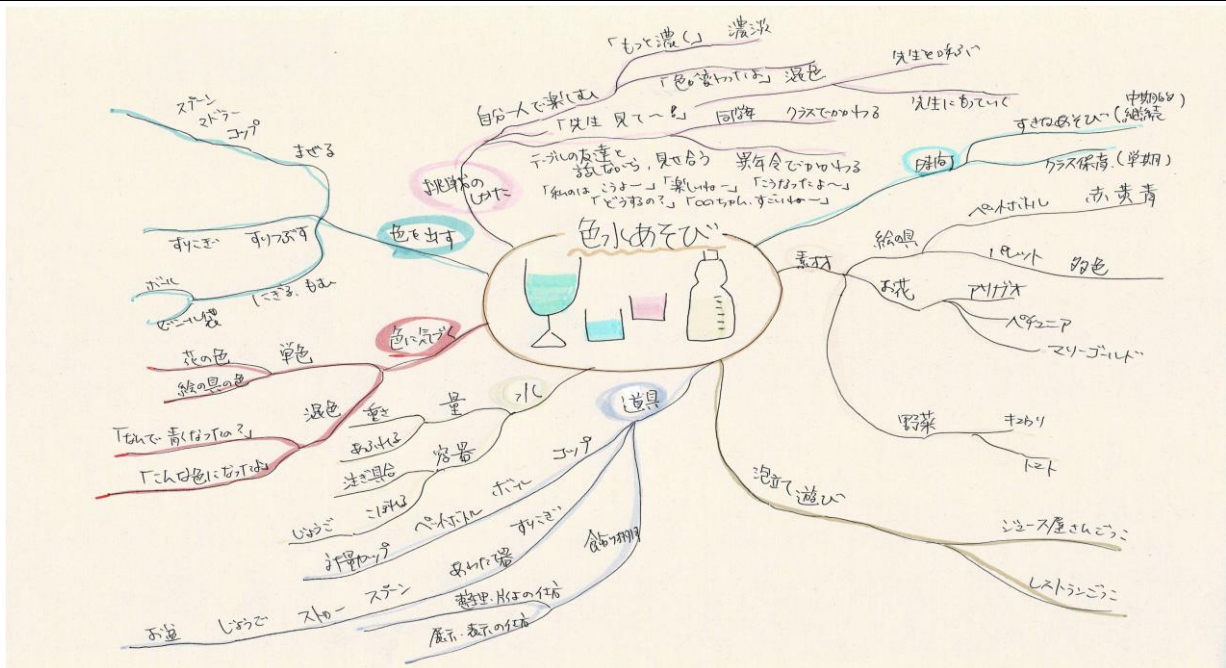 色水あそび
挑戦のしかた
自分一人で楽しむ
「もっと濃く」 濃淡
「色が変わったよ」 混色
「先生 見て〜!」
先生を呼ぶ
先生にもっていく
同学年 クラスでかかわる
テーブルの友達と
話しながら、見せ合う 異年令でかかわる
「私のは こうよー」「楽しいねー」「こうなったよ〜」
「どうするの?」「○○ちゃん、すごいねー」
時間
すきなあそび(中期6月 継続)
クラス保育(学期)
素材
絵の具
ペットボトル 赤 黄 青
パレット 多色
お花
アサガオ
ペチュニア
マリーゴールド
野菜
キュウリ
トマト
泡立て遊び
ジュース屋さんごっこ
レストランごっこ
道具
コップ
ボール
ペットボトル
計量カップ
すりこぎ
あわたて器
スプーン
ストロー
じょうご
お盆
飾り棚
整理・片付の仕方
展示・表示の仕方
水
量
重さ
あふれる
容器
注ぎ具合
こぼれる
じょうご
色に気づく
単色
花の色
絵の具の色
混色
「なんで青くなったの?」
「こんな色になったよ」
色を出す
まぜる
スプーン
マドラー
コップ
すりつぶす
すりこぎ
にぎる、もむ
ボール
ビニール袋